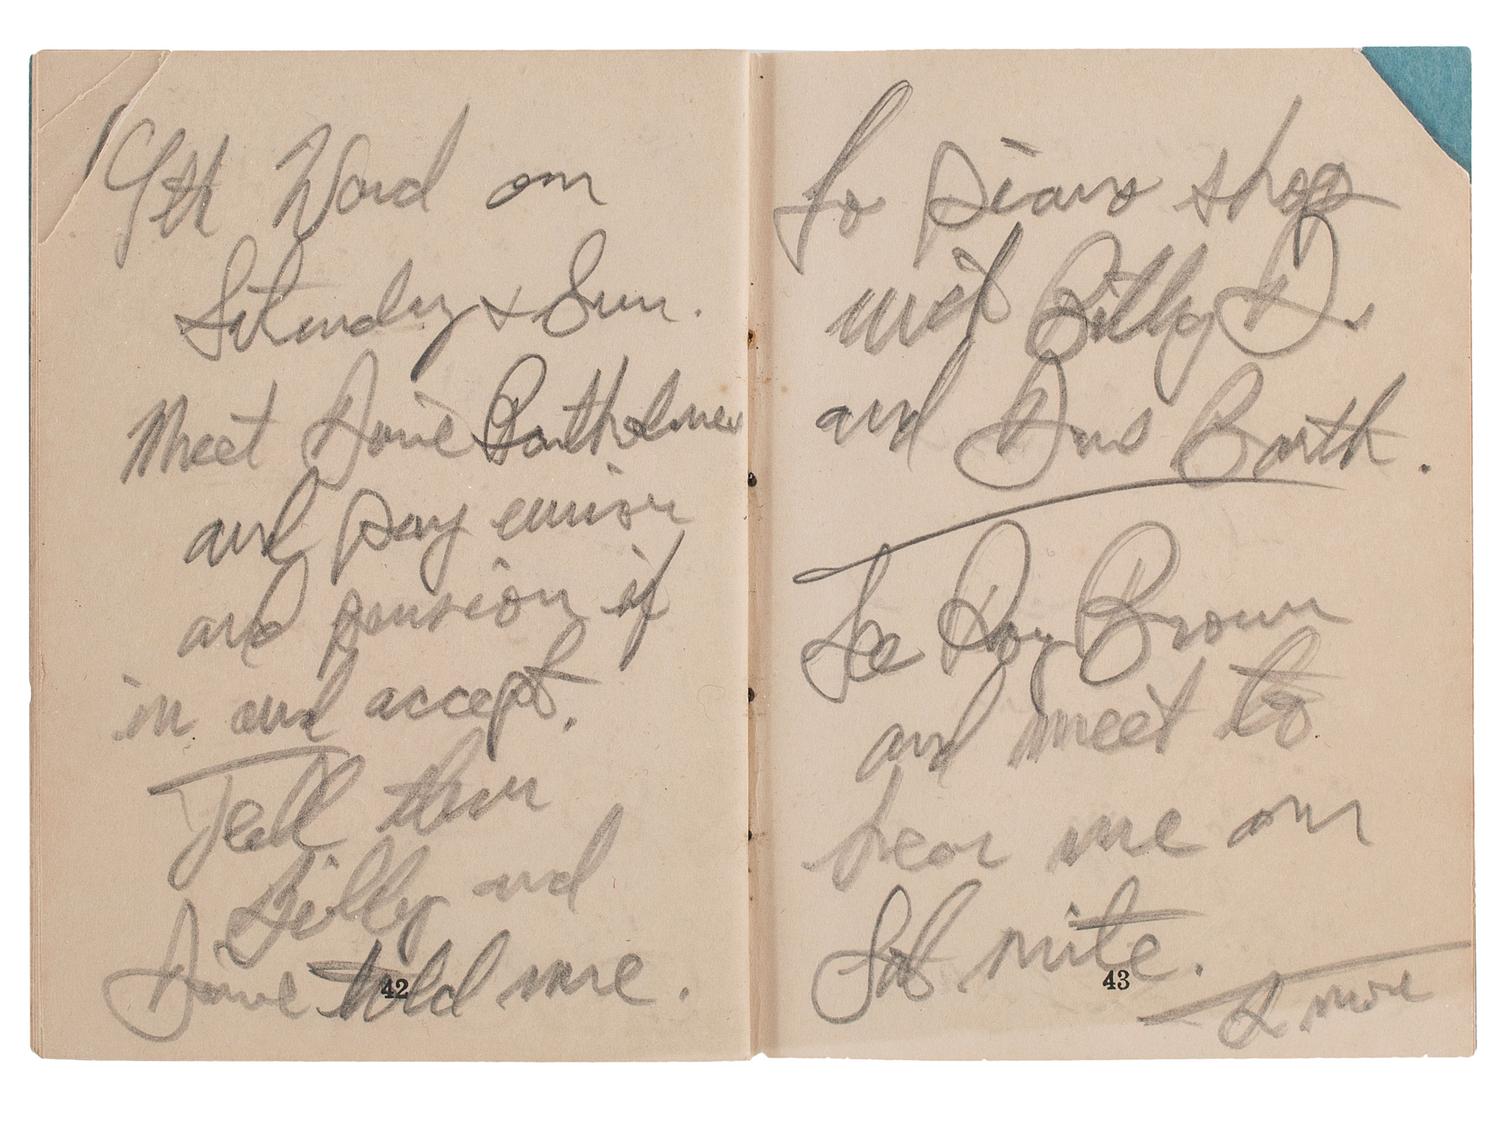 9th Ward on
Saturday & Sun.
Meet Dave Bartholomew
and pay
and pension if
in and accept.
Tell them
Billy and
Dave told me.
42
Go piano shop
with Billy D.
and Dave Barth.
See Roy Brown
and meet to
hear me on
Sat. nite.
& more
43